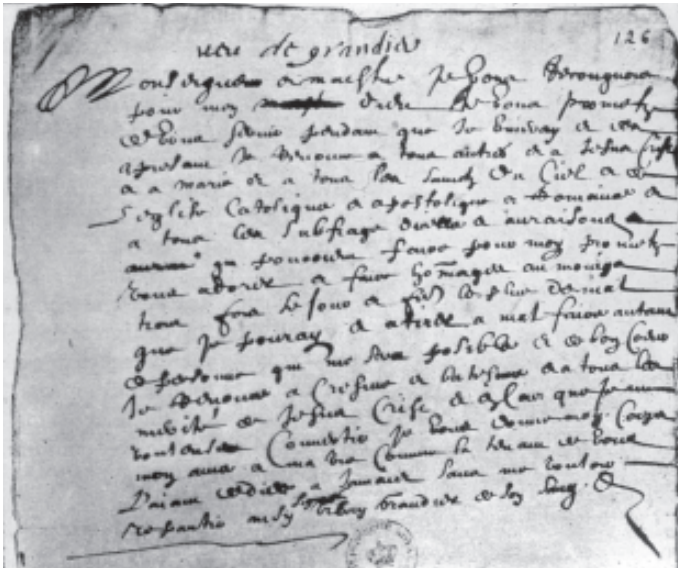 veu de grandier
126
Monseigneur & maistre je vous recongnois
pour mon dieu & vous prometz
de vous servir pendant que je vivray & des
apresant je renonce a tous autres & a Jesus Crist
& a marie & a tous les sainctz du Ciel & a
l'eglise Catolique & apostolique & Romaine &
a tous les subfrages dicelle & auraisons
qui pouroient faire pour moy prometz
vous adorer & faire homages au moings
trois fois le jour & fere le plus de mal
que je pouray & atirer a mal faire autant
de personne qui me sera posible & de bon Coeur
je renonce a Cresme & batesme & a tous les
merites de Jesus Crist & au Cas que je
voulusse Convertir je vous donne mon Corps
mon ame & ma vie Comme la tenant de vous
l'aiant dediée a jamais sans me vouloir
repantir ainsy signé urbain Grandier de son sang